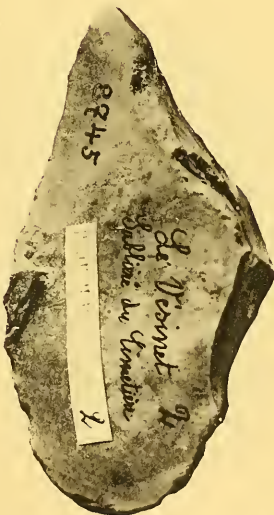 8745
Le Vésinet
Sablière du Cimetière